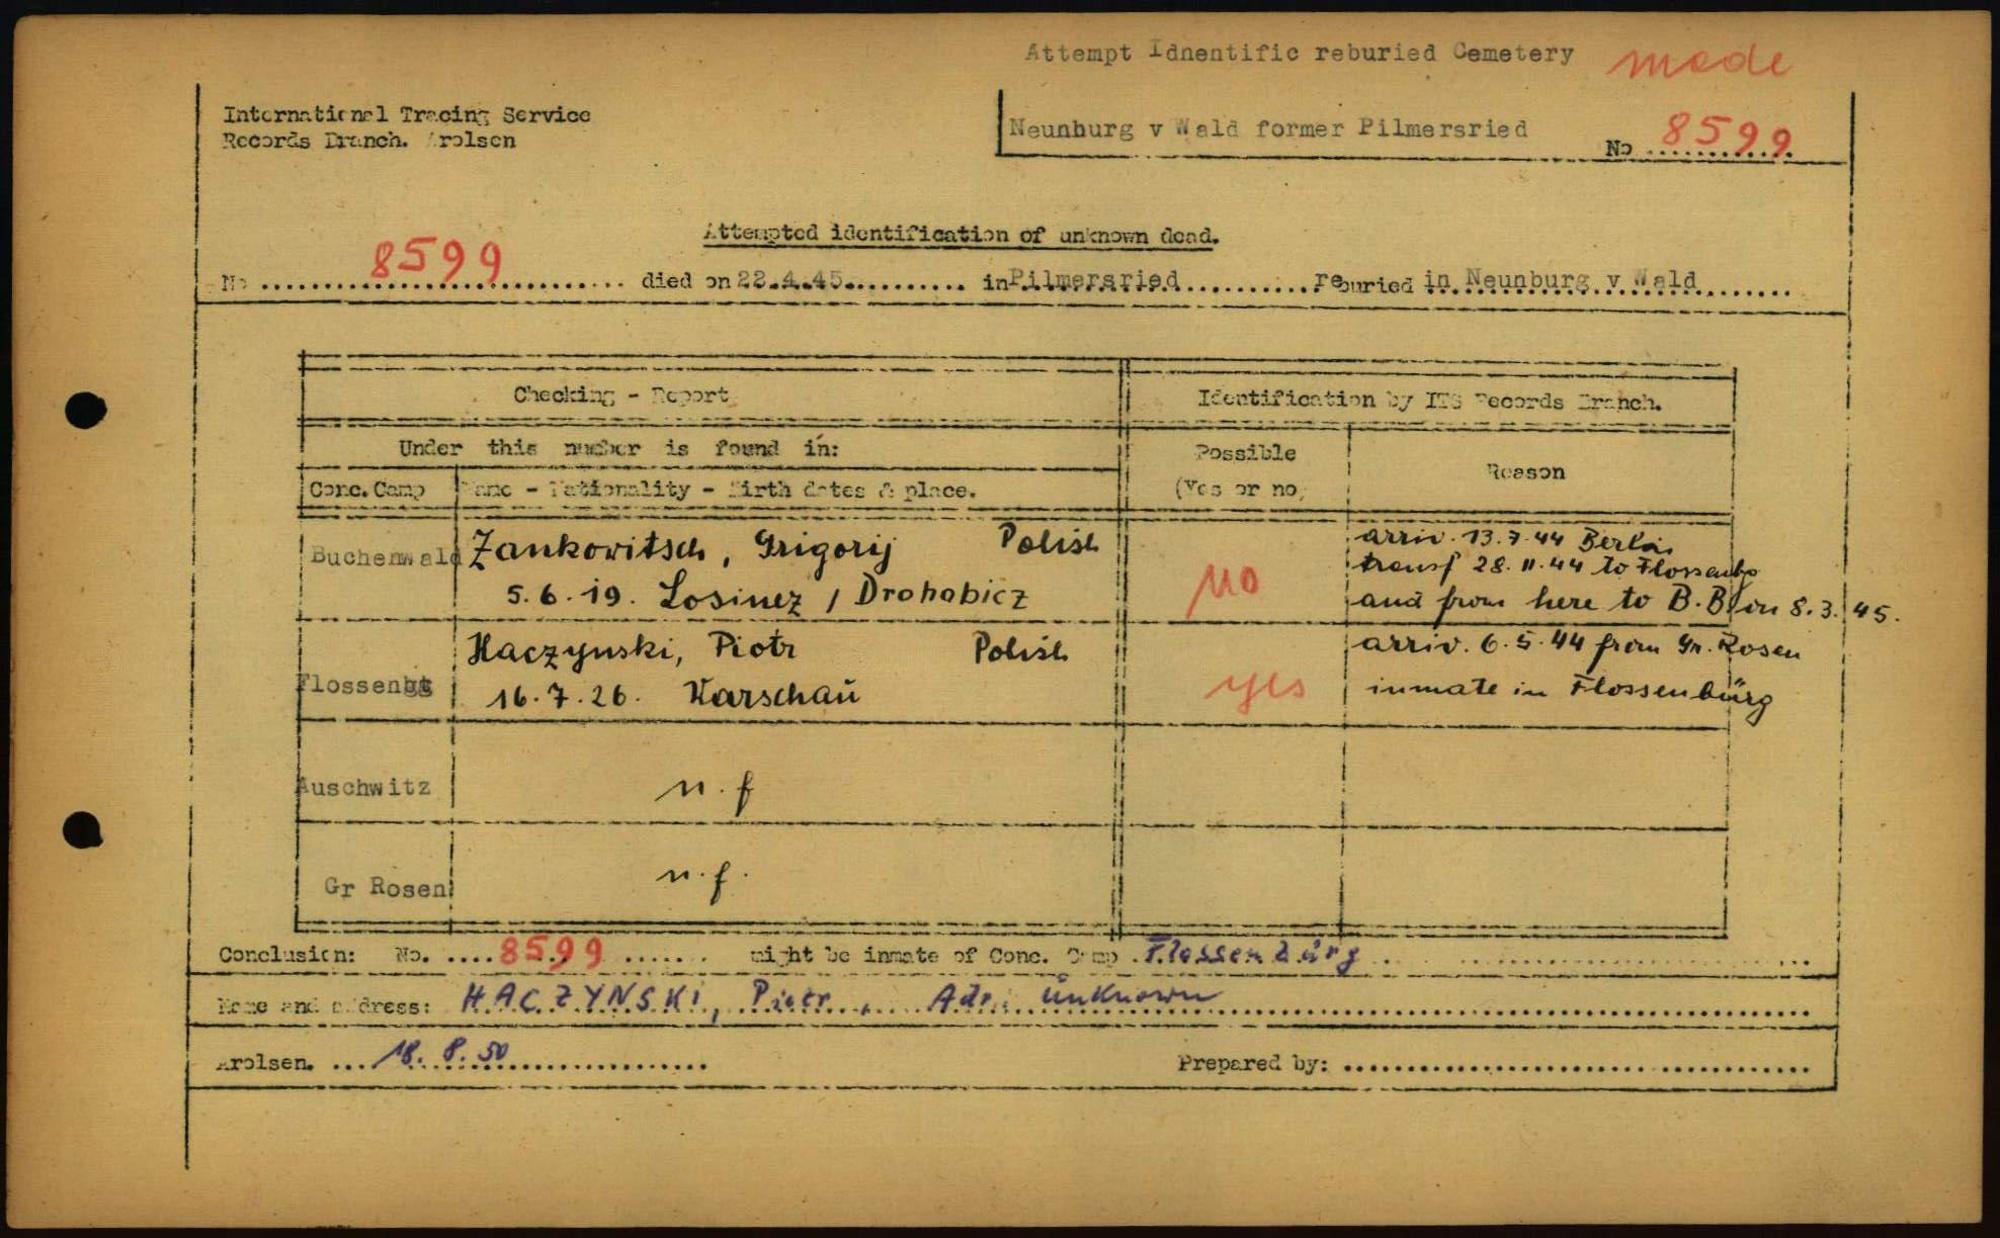 Attempt Idnentific reburied Cemetery made
International Tracing Service
Records Branch. Arolsen
Neunburg v Wald former Pilmersried
No 8599
Attempted identification of unknown dead.
No 8599 died on 22.4.45. in Pilmersried reburied in Neunburg v Wald
Checking - Report
Identification by ITS Records Branch.
Under this number is found in:
Possible
(Yes or no)
Reason
Conc. Camp Name - Nationality - Birth dates & place.
Buchenwald Zankowitsch, Grigorij Polish
5.6.19. Losinez / Drohobicz
no
arriv. 13.7.44 Berlin
transf 28.11.44 to Flossenbg
and from here to B.B. on 8.3.45.
Flossenbg Haczynski, Piotr Polish
16.7.26. Warschau
yes
arriv. 6.5.44 from Gr. Rosen
inmate in Flossenbürg
Auschwitz n.f
Gr Rosen n.f.
Conclusion: No. 8599 might be inmate of Conc. Camp Flossenbürg
Name and address: HACZYNSKI, Piotr, Adr. unknown
Arolsen. 18.8.50 Prepared by: